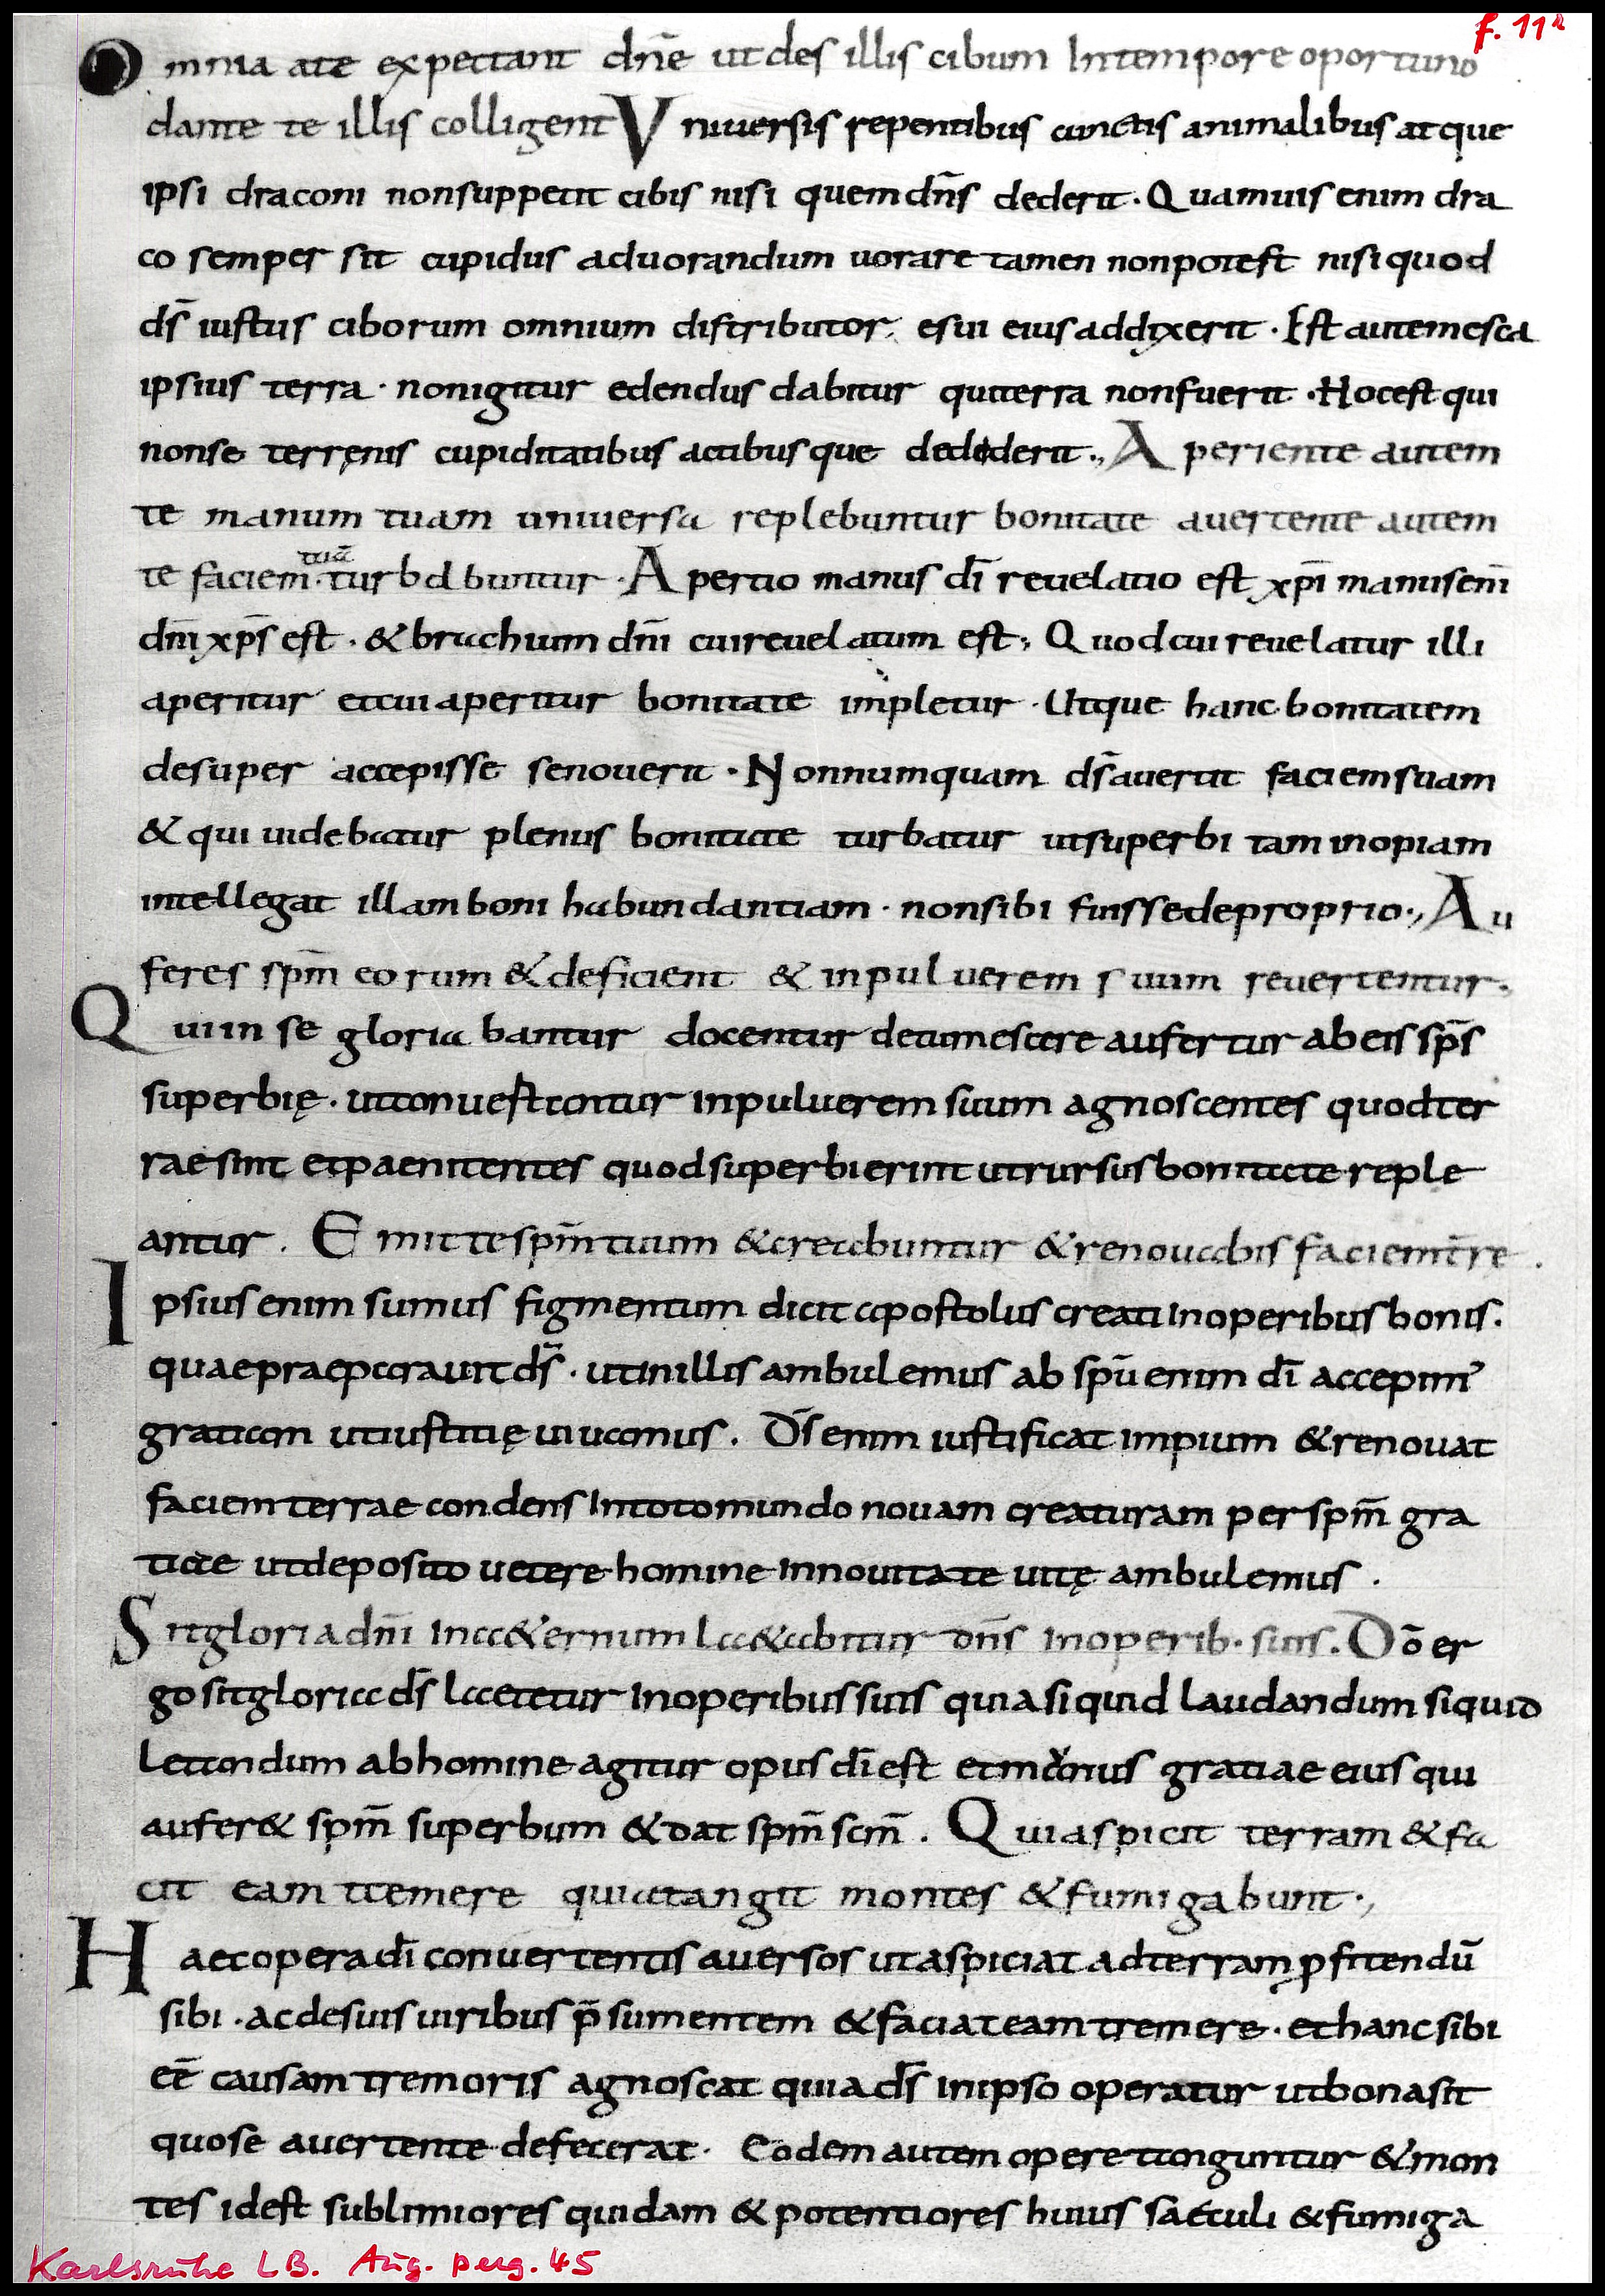 f. 11r
Omnia a te expectant dn̄e ut des illis cibum In tempore oportuno
dante te illis colligent Vniuersis repentibus cunctis animalibus atque
ipsi draconi non suppetit cibis nisi quem dn̄s dederit · Quamuis enim dra
co semper sit cupidus aduorandum uorare tamen non potest nisi quod
ds̄ iustus ciborum omnium distributor, esui eius addixerit · Est autem esca
ipsius terra · non igitur edendus dabitur qui terra non fuerit · Hoc est qui
non se terręnis cupiditatibus actibusque dediderit ., Aperiente autem
te manum tuam uniuersa replebuntur bonitate auertente autem
te faciem · tuā turbabuntur · Apertio manus dī reuelatio est xp̄i manus enī
dn̄i xp̄s est · & brachium dn̄i cui reuelatum est ; Quod cui reuelatur illi
aperitur et cui aperitur bonitate impletur · Utque hanc bonitatem
desuper accepisse se nouerit · Nonnumquam ds̄ auertit faciem suam
& qui uidebatur plenus bonitate turbatur ut superbi tam inopiam
intellegat illam boni habundantiam · non sibi fuisse de proprio ., Au
feres sp̄m eorum & deficient & in puluerem suum reuertentur.
Qui in se gloriabantur docentur detumescere aufertur ab eis sp̄s
superbię · ut conuestiantur in puluerem suum agnoscentes quod ter
rae sint et paenitentes quod superbierint ut rursus bonitate reple
antur . Emitte sp̄m tuum & creabuntur & renouabis faciem t̄re .
Ipsius enim sumus figmentum dicit apostolus creati In operibus bonis.
quae praeparauit ds̄ · ut in illis ambulemus ab sp̄u enim dī accepim'
gratiam ut iustitię uiuamus . Ds̄ enim iustificat impium & renouat
faciem terrae condens In toto mundo nouam creaturam per sp̄m gra
tiae ut deposito uetere homine In nouitate uitę ambulemus .
Sit gloria dn̄i In a&ernum la&abitur dn̄s In operib · suis . Dō er
go sit gloria ds̄ laetetur In operibus suis quia si quid laudandum si quid
letandum ab homine agitur opus dī est et munus gratiae eius qui
aufer& sp̄m superbum & dat sp̄m scm̄ . Qui aspicit terram & fa
cit eam tremere qui tangit montes & fumigabunt .,
Haec opera dī conuertentis auersos ut aspiciat ad terram p fitendū
sibi · ac de suis uiribus p̄sumentem & faciat eam tremere · et hanc sibi
eē causam tremoris agnoscat quia ds̄ in ipso operatur ut bona sit
quo se auertente defecerat · Eodem autem opere tanguntur & mon
tes id est sublimiores quidam & potentiores huius saeculi & fumiga
Karlsruhe LB. Aug. perg. 45